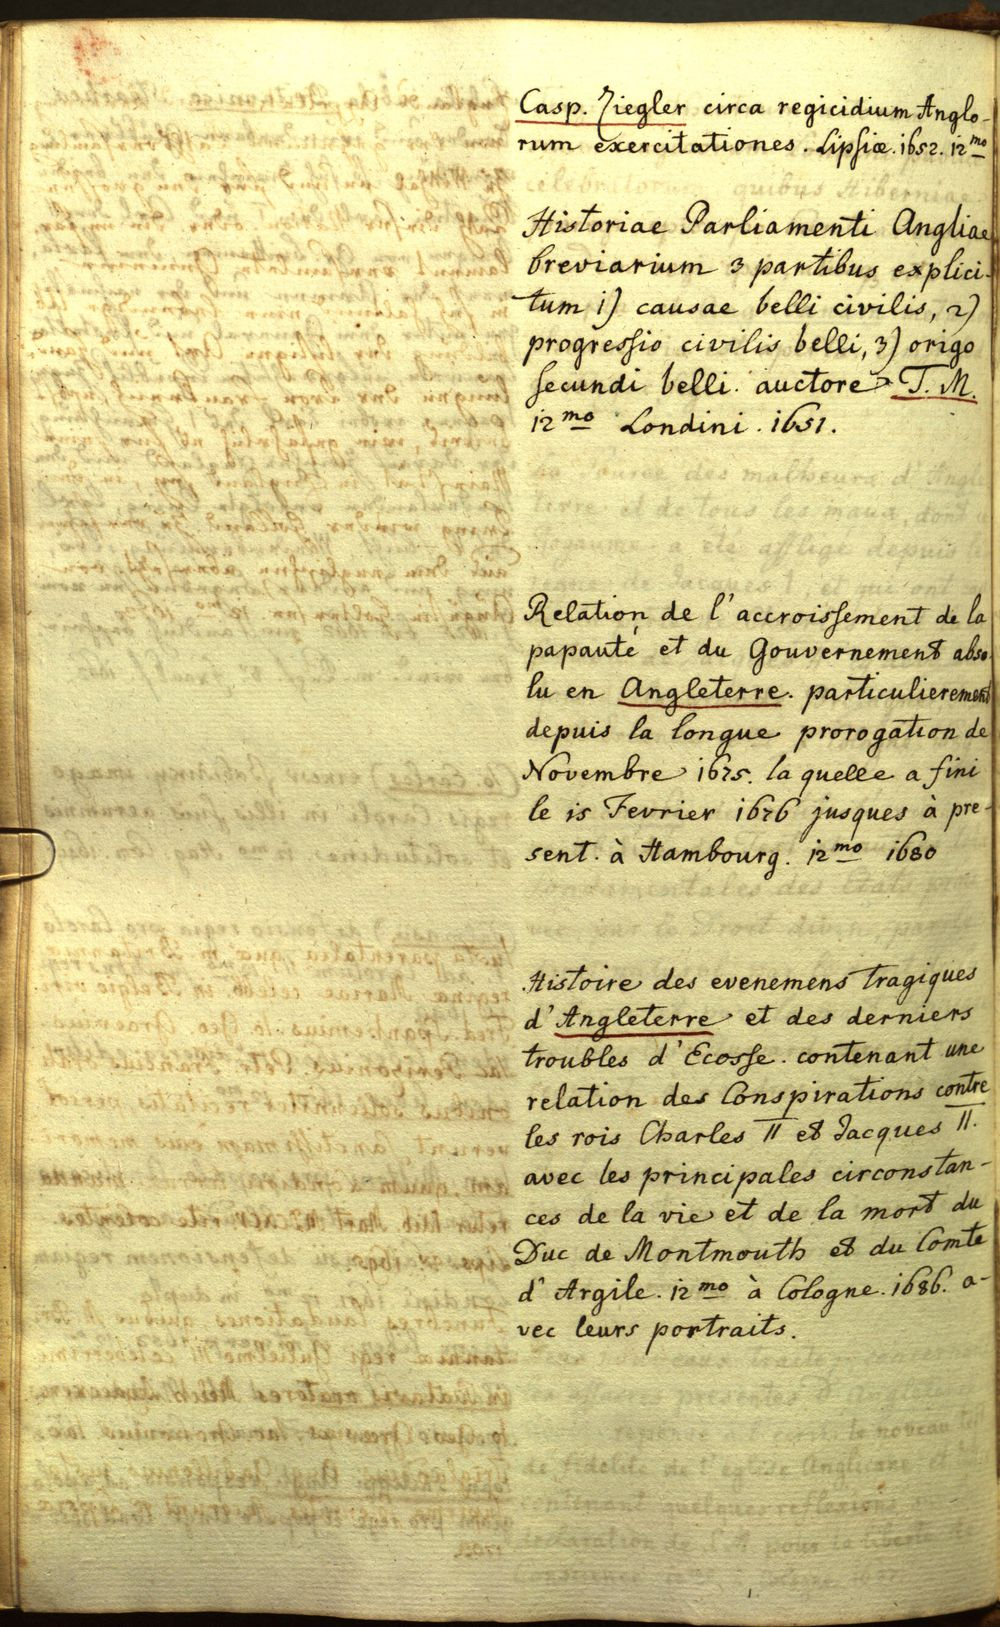 Casp. Ziegler circa regicidium Anglo-
rum exercitationes. Lipsiæ. 1652. 12mo
Historiae Parliamenti Angliae
breviarium 3 partibus explici-
tum 1) causae belli civilis, 2)
progressio civilis belli, 3) origo
secundi belli. auctore T. M.
12mo Londini. 1651.
Relation de l'accroissement de la
papauté et du Gouvernement abso-
lu en Angleterre. particulierement
depuis la longue prorogation de
Novembre 1675. la quelle a fini
le 15 Fevrier 1676 jusques à pre-
sent. à Hambourg. 12mo 1680
Histoire des evenemens tragiques
d'Angleterre et des derniers
troubles d'Ecosse. contenant une
relation des Conspirations contre
les rois Charles II et Jacques II.
avec les principales circonstan-
ces de la vie et de la mort du
Duc de Montmouth et du Comte
d'Argile. 12mo à Cologne. 1686. a-
vec leurs portraits.